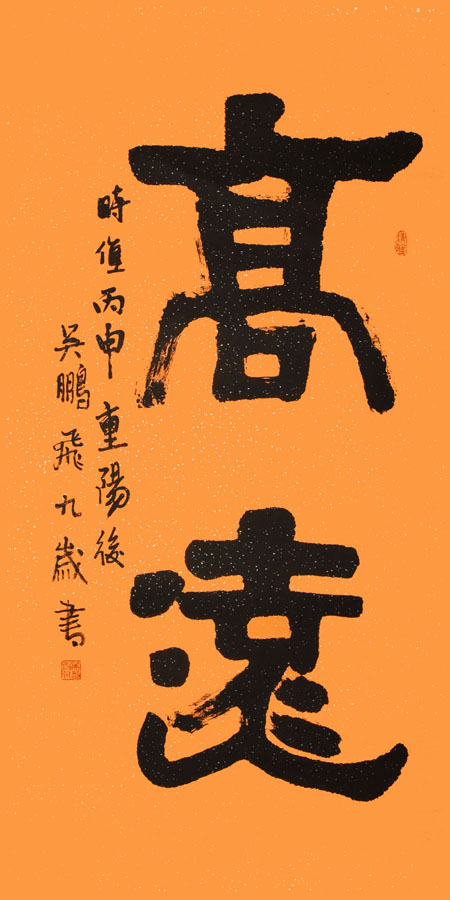 高遠
時值丙申重陽後
吳鵬飛九歲書